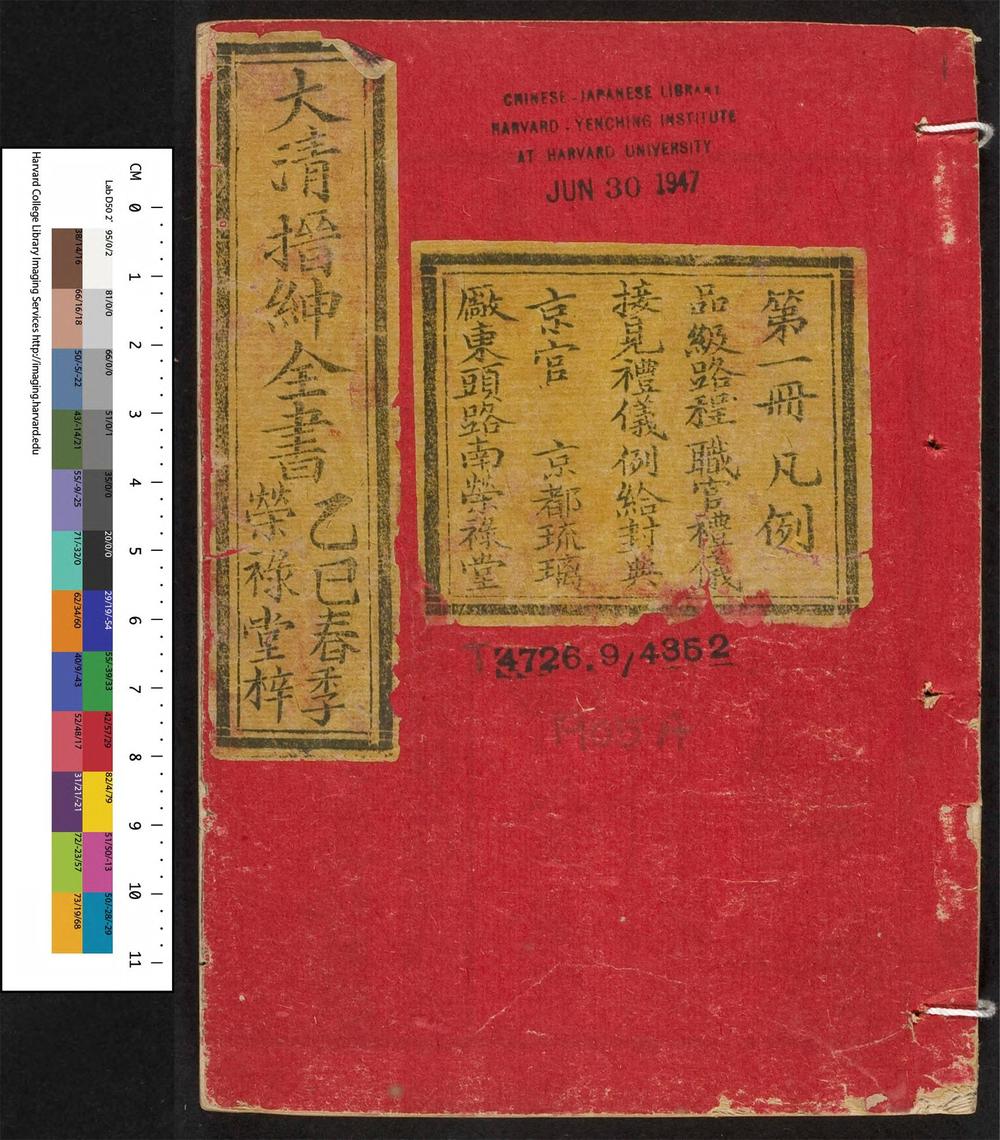 大清搢紳全書
乙巳春季
榮祿堂梓
CHINESE-JAPANESE LIBRARY
HARVARD-YENCHING INSTITUTE
AT HARVARD UNIVERSITY
JUN 30 1947
第一冊 凡例
品級路程 職官禮儀
接見禮儀 例給封典
京官 京都琉璃
廠東頭路南榮祿堂
T 4726.9/4352
1905 A
CM 0 1 2 3 4 5 6 7 8 9 10 11
Harvard College Library Imaging Services http://imaging.harvard.edu
38/14/16
66/16/18
50/-5/-22
43/-14/21
55/-9/-25
71/-32/0
62/34/60
40/9/-43
52/48/17
31/21/-21
72/-23/57
73/19/68
95/0/2
81/0/0
66/0/0
51/0/1
35/0/0
20/0/0
29/19/-54
55/-39/33
42/57/29
82/4/79
51/50/-13
50/-28/-29